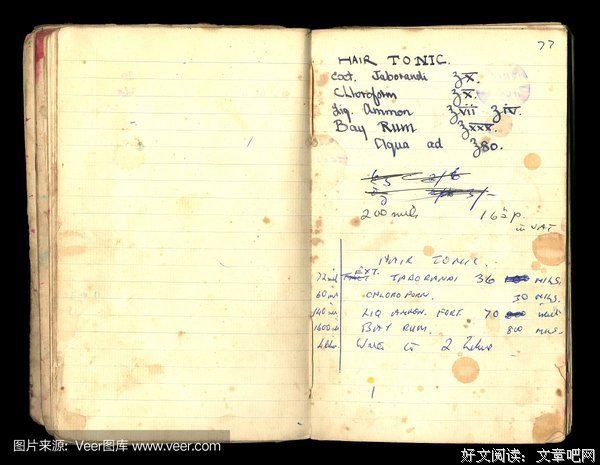 77
HAIR TONIC.
Ext. Jaborandi ʒX.
Chloroform ʒX.
Liq. Ammon ʒvii ʒiv.
Bay RUM ʒxxx.
Aqua ad ʒ80.
200 mils 16 p.
VAT
HAIR TONIC.
72 EXT. JABORANDI 36 MILS.
60 CHLOROFORM. 30 MLS.
140 LIQ AMMON. FORT. 70
1600 BAY RUM. 800 MLS.
Water to 2
图片来源: Veer图库 www.veer.com
好文阅读: 文章吧网